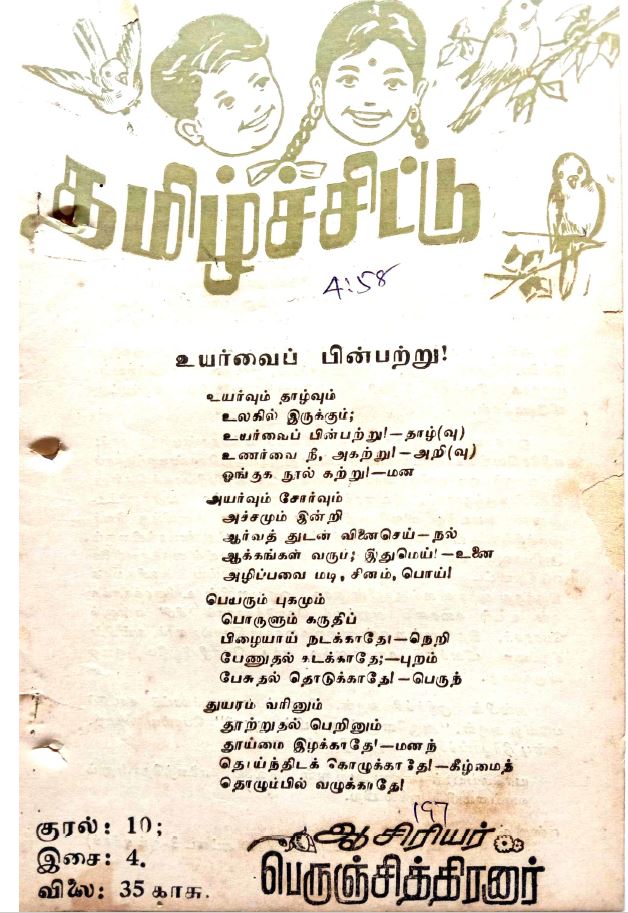 தமிழ்ச்சிட்டு
4:58
உயர்வைப் பின்பற்று!
உயர்வும் தாழ்வும்
உலகில் இருக்கும்;
உயர்வைப் பின்பற்று!—தாழ்(வு)
உணர்வை நீ, அகற்று!—அறி(வு)
ஓங்துக நூல் கற்று!—மன
அயர்வும் சோர்வும்
அச்சமும் இன்றி
ஆர்வத் துடன் வினைசெய்—நல்
ஆக்கங்கள் வரும்; இதுமெய்!—உனை
அழிப்பவை மடி, சினம், பொய்!
பெயரும் புகழும்
பொருளும் கருதிப்
பிழையாய் நடக்காதே!—நெறி
பேணுதல் கடக்காதே;—புறம்
பேசுதல் தொடுக்காதே!—பெருந்
துயரம் வரினும்
தூற்றுதல் பெறினும்
தூய்மை இழக்காதே!—மனந்
தொய்ந்திடக் கொழுக்காதே!—கீழ்மைத்
தொழும்பில் வழுக்காதே!
197
குரல்: 10;
இசை: 4.
விலை: 35 காசு.
ஆசிரியர்
பெருஞ்சித்திரனார்